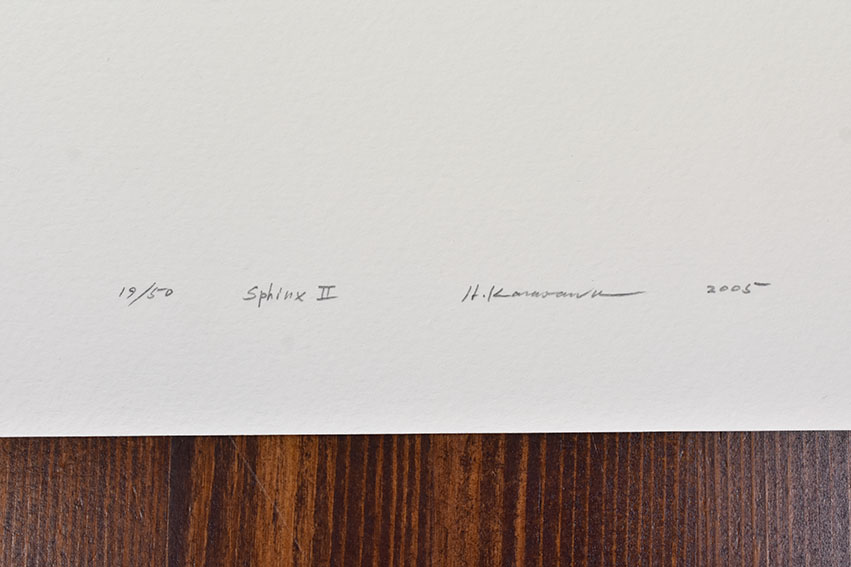 19/50 Sphinx II H. Karasawa 2005